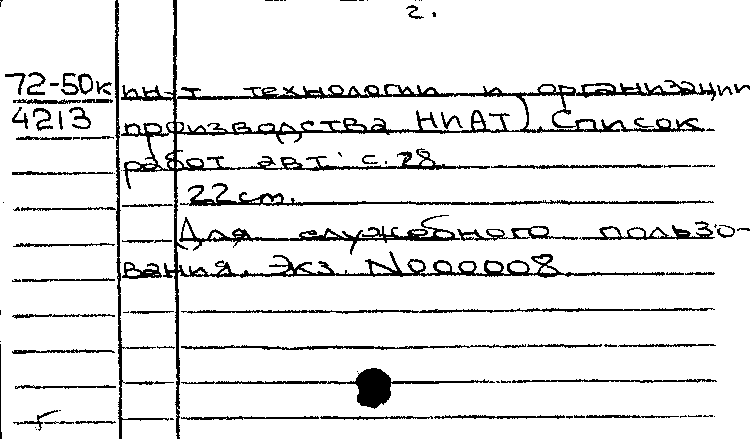 2.
72-50к ин-т технологии и организации
4213 производства НИАТ). Список
работ авт. с. 28.
22 cm.
Для служебного пользо-
вания. Экз. N000008.